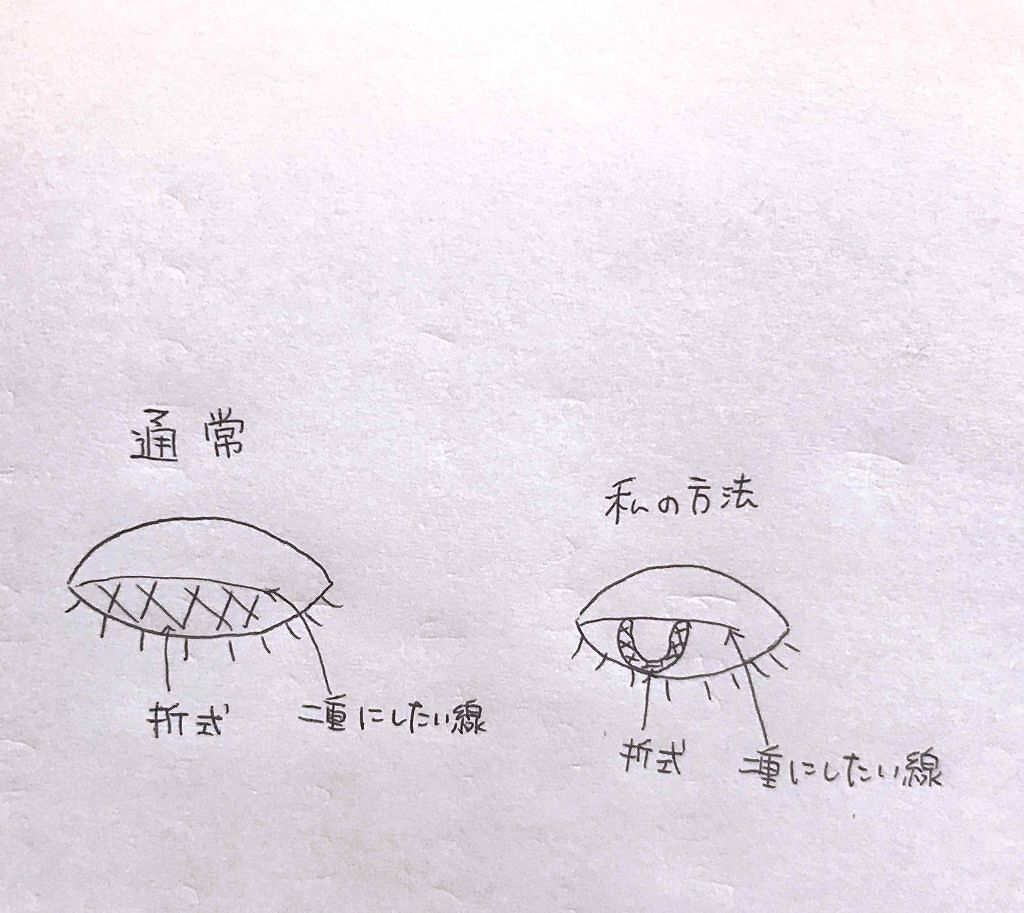 通常
私の方法
折式
二重にしたい線
折式
二重にしたい線